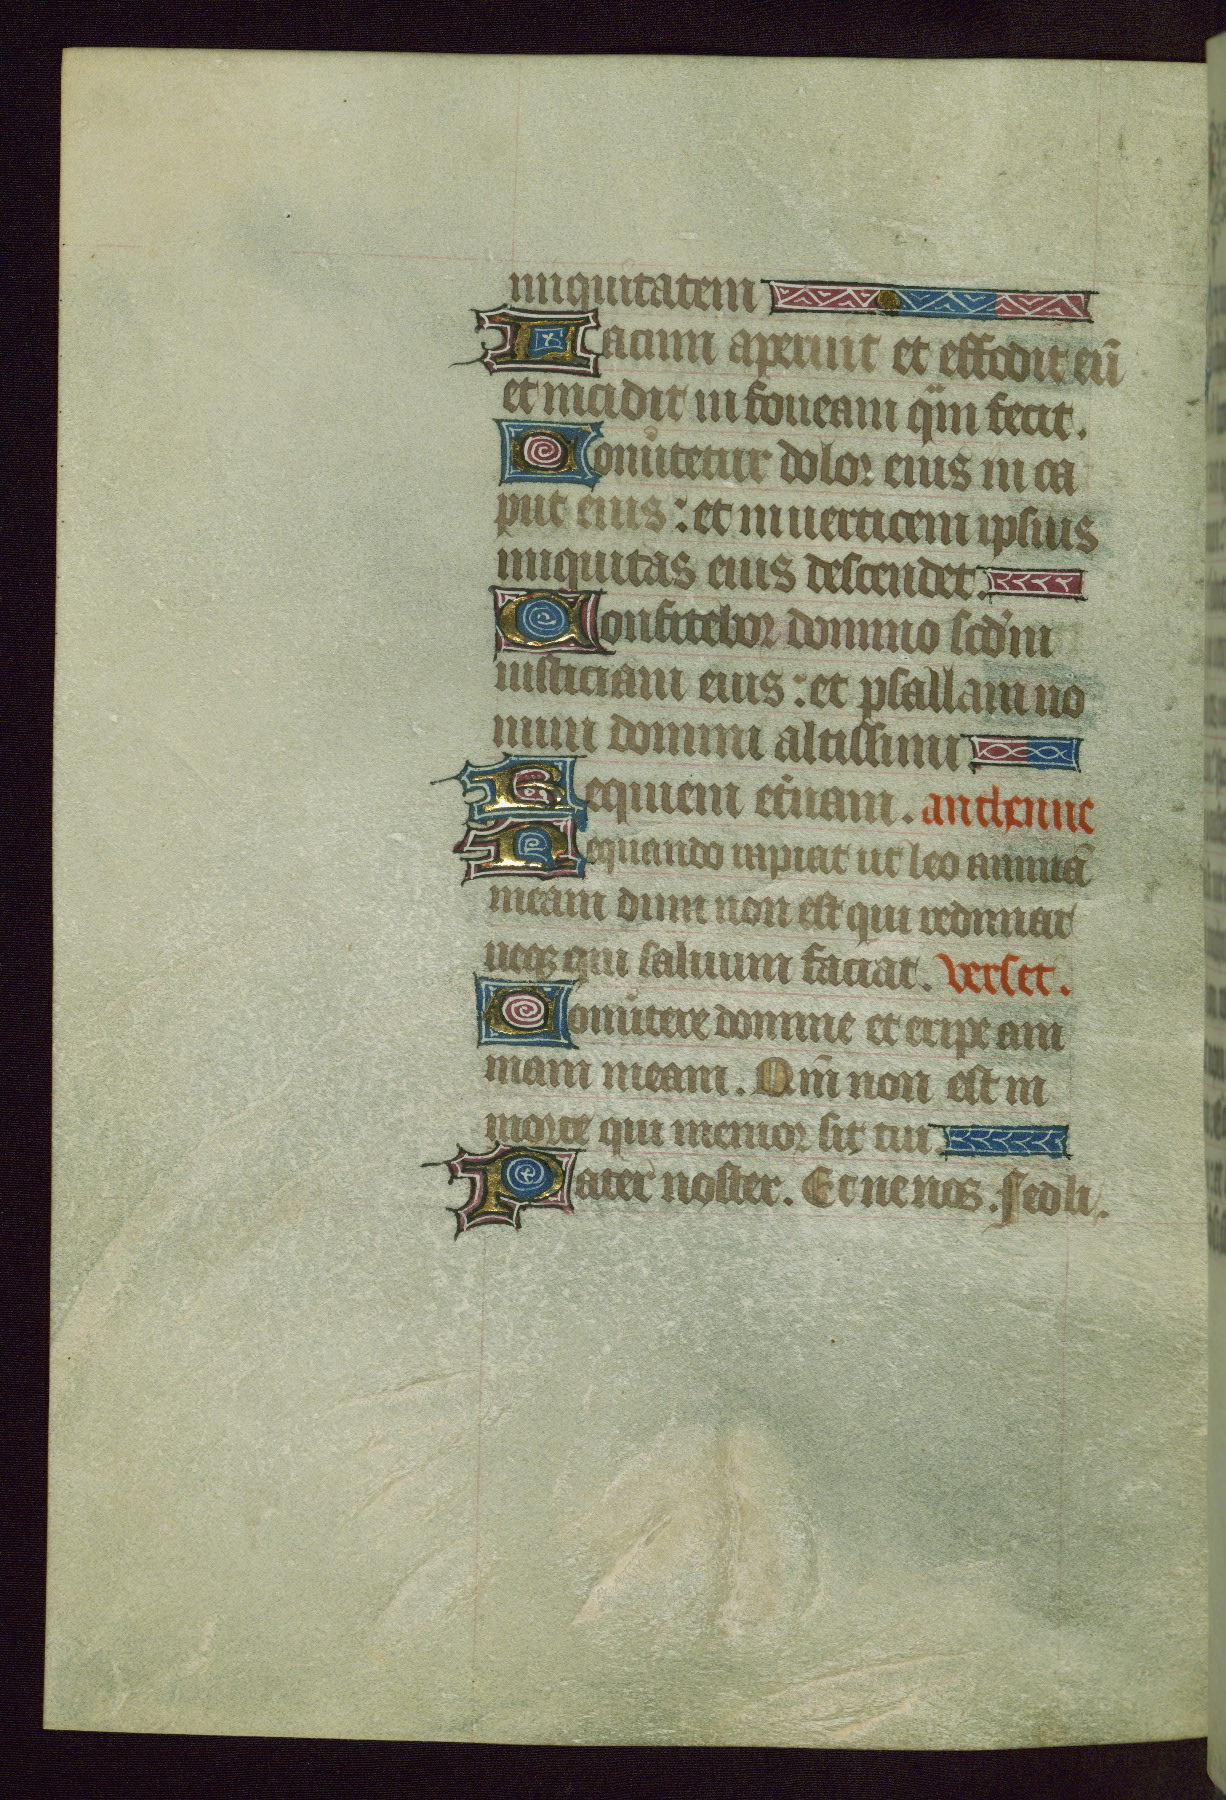 iniquitatem
Lacum aperuit et effodit eū
et incidit in foueam q̄m fecit.
Conu̾tetur dolor eius in ca
put eius : et in uerticem ipsius
iniquitas eius descendet.
Confitebor domino scd̾m
iusticiam eius : et psallam no
mini domini altissimi.
Requiem et̾nam. anthenne
Nequando rapiat ut leo animā
meam dum non est qui redimat
neqꝫ qui saluum faciat. verset.
Conu̾tere domine et eripe ani
mam meam. Qm̄ non est in
morte qui memor sit tui.
Pater noster. Et ne nos. Sed li.